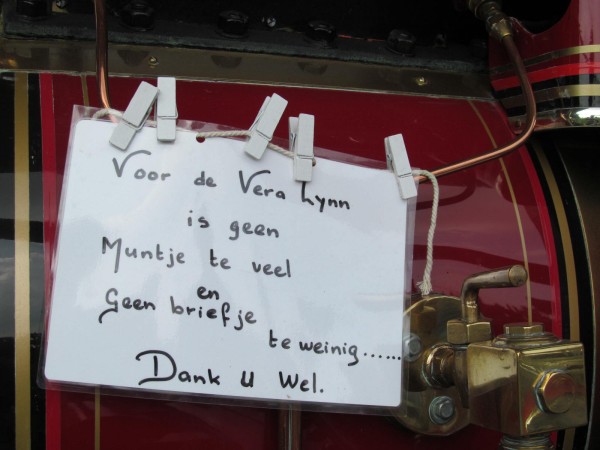 Voor de Vera Lynn
is geen
Muntje te veel
en
Geen briefje
te weinig......
Dank U Wel.